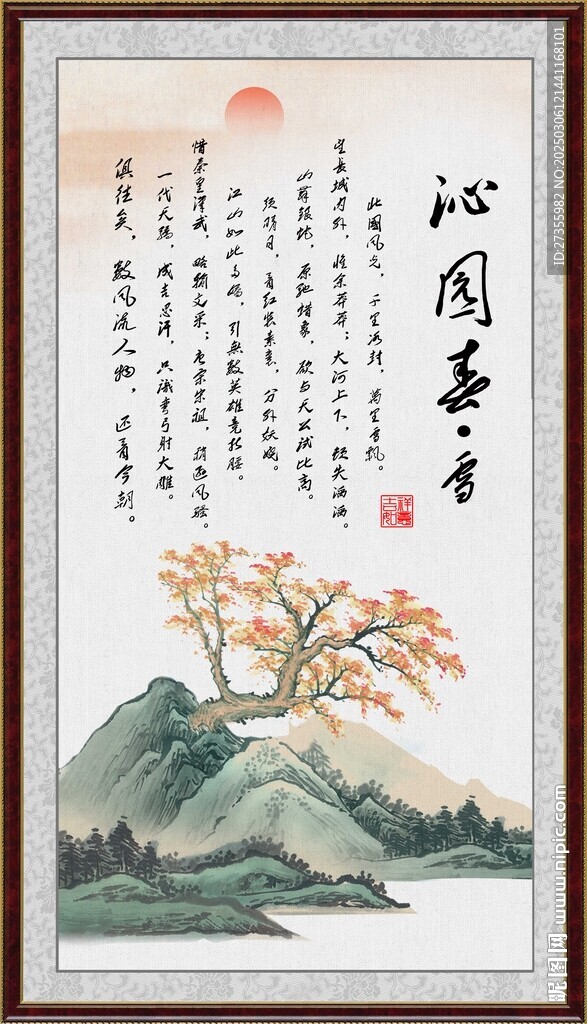 沁园春·雪
北國风光，千里冰封，萬里雪飘。
望長城内外，惟余莽莽；大河上下，顿失滔滔。
山舞银蛇，原驰蜡象，欲与天公试比高。
须晴日，看红装素裹，分外妖娆。
江山如此多娇，引無數英雄竞折腰。
惜秦皇漢武，略输文采；唐宗宋祖，稍逊风骚。
一代天骄，成吉思汗，只識弯弓射大雕。
俱往矣，數风流人物，还看今朝。
吉祥
如意
ID:27355982 NO:20250306121441168101
昵图网 www.nipic.com